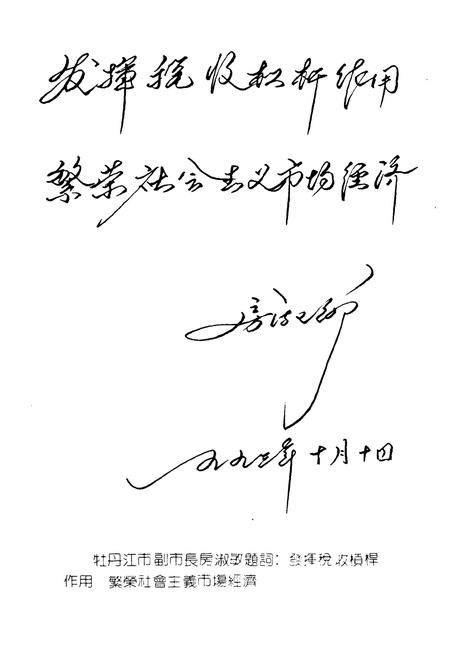 发揮税收杠杆作用
繁荣社会主义市场經济
房淑
一九九三年十月十四
牡丹江市副市長房淑題詞：發揮稅收槓桿
作用　繁榮社會主義市場經濟